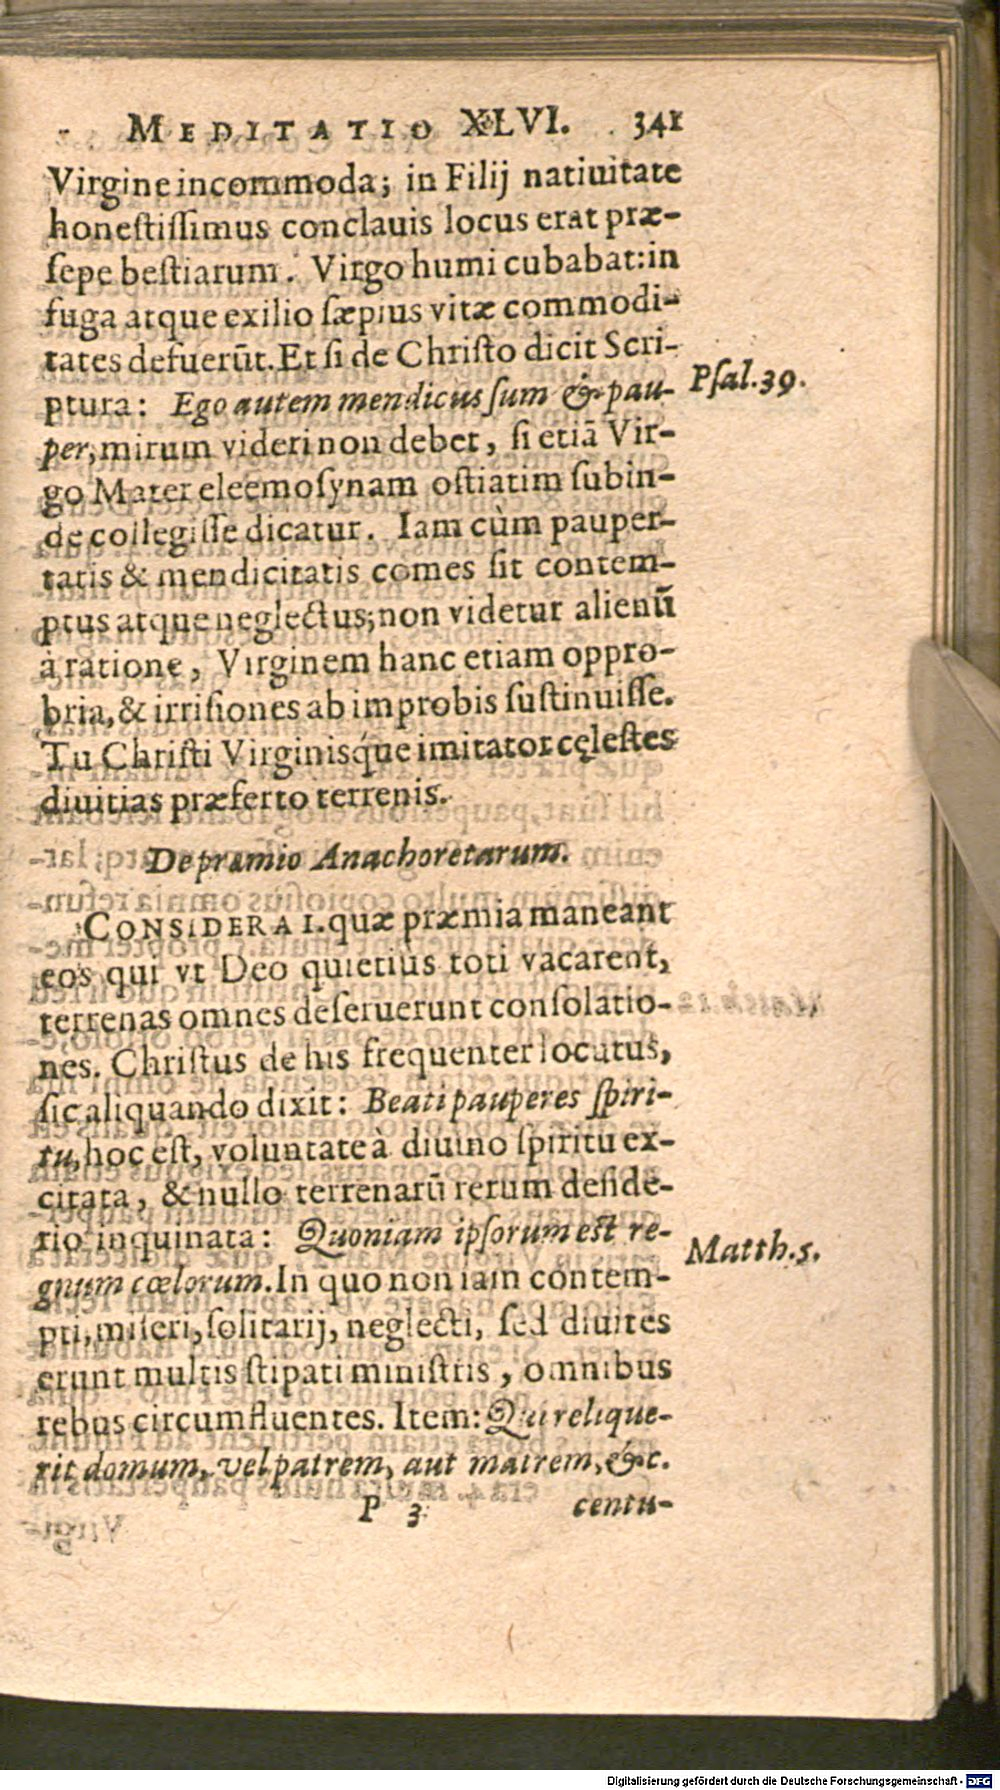 MEDITATIO XLVI. 341
Virgine incommoda; in Filij natiuitate
honestissimus conclauis locus erat præ-
sepe bestiarum. Virgo humi cubabat: in
fuga atque exilio sæpius vitæ commodi-
tates defuerũt. Et si de Christo dicit Scri-
ptura: Ego autem mendicus sum & pau-
Psal. 39.
per, mirum videri non debet, si etiã Vir-
go Mater eleemosynam ostiatim subin-
de collegisse dicatur. Iam cùm pauper-
tatis & mendicitatis comes sit contem-
ptus atque neglectus; non videtur alienũ
à ratione, Virginem hanc etiam oppro-
bria, & irrisiones ab improbis sustinuisse.
Tu Christi Virginisq́ue imitator cęlestes
diuitias præferto terrenis.
De præmio Anachoretarum.
CONSIDERA 1. quæ præmia maneant
eos qui vt Deo quietius toti vacarent,
terrenas omnes deseruerunt consolatio-
nes. Christus de his frequenter locutus,
sic aliquando dixit: Beati pauperes spiri-
tu, hoc est, voluntate à diuino spiritu ex-
citata, & nullo terrenarũ rerum deside-
rio inquinata: Quoniam ipsorum est re-
Matth. 5.
gnum cœlorum. In quo non iam contem-
pti, miseri, solitarij, neglecti, sed diuites
erunt multis stipati ministris, omnibus
rebus circumfluentes. Item: Qui relique-
rit domum, vel patrem, aut matrem, &c.
P 3 centu-
Digitalisierung gefördert durch die Deutsche Forschungsgemeinschaft - DFG